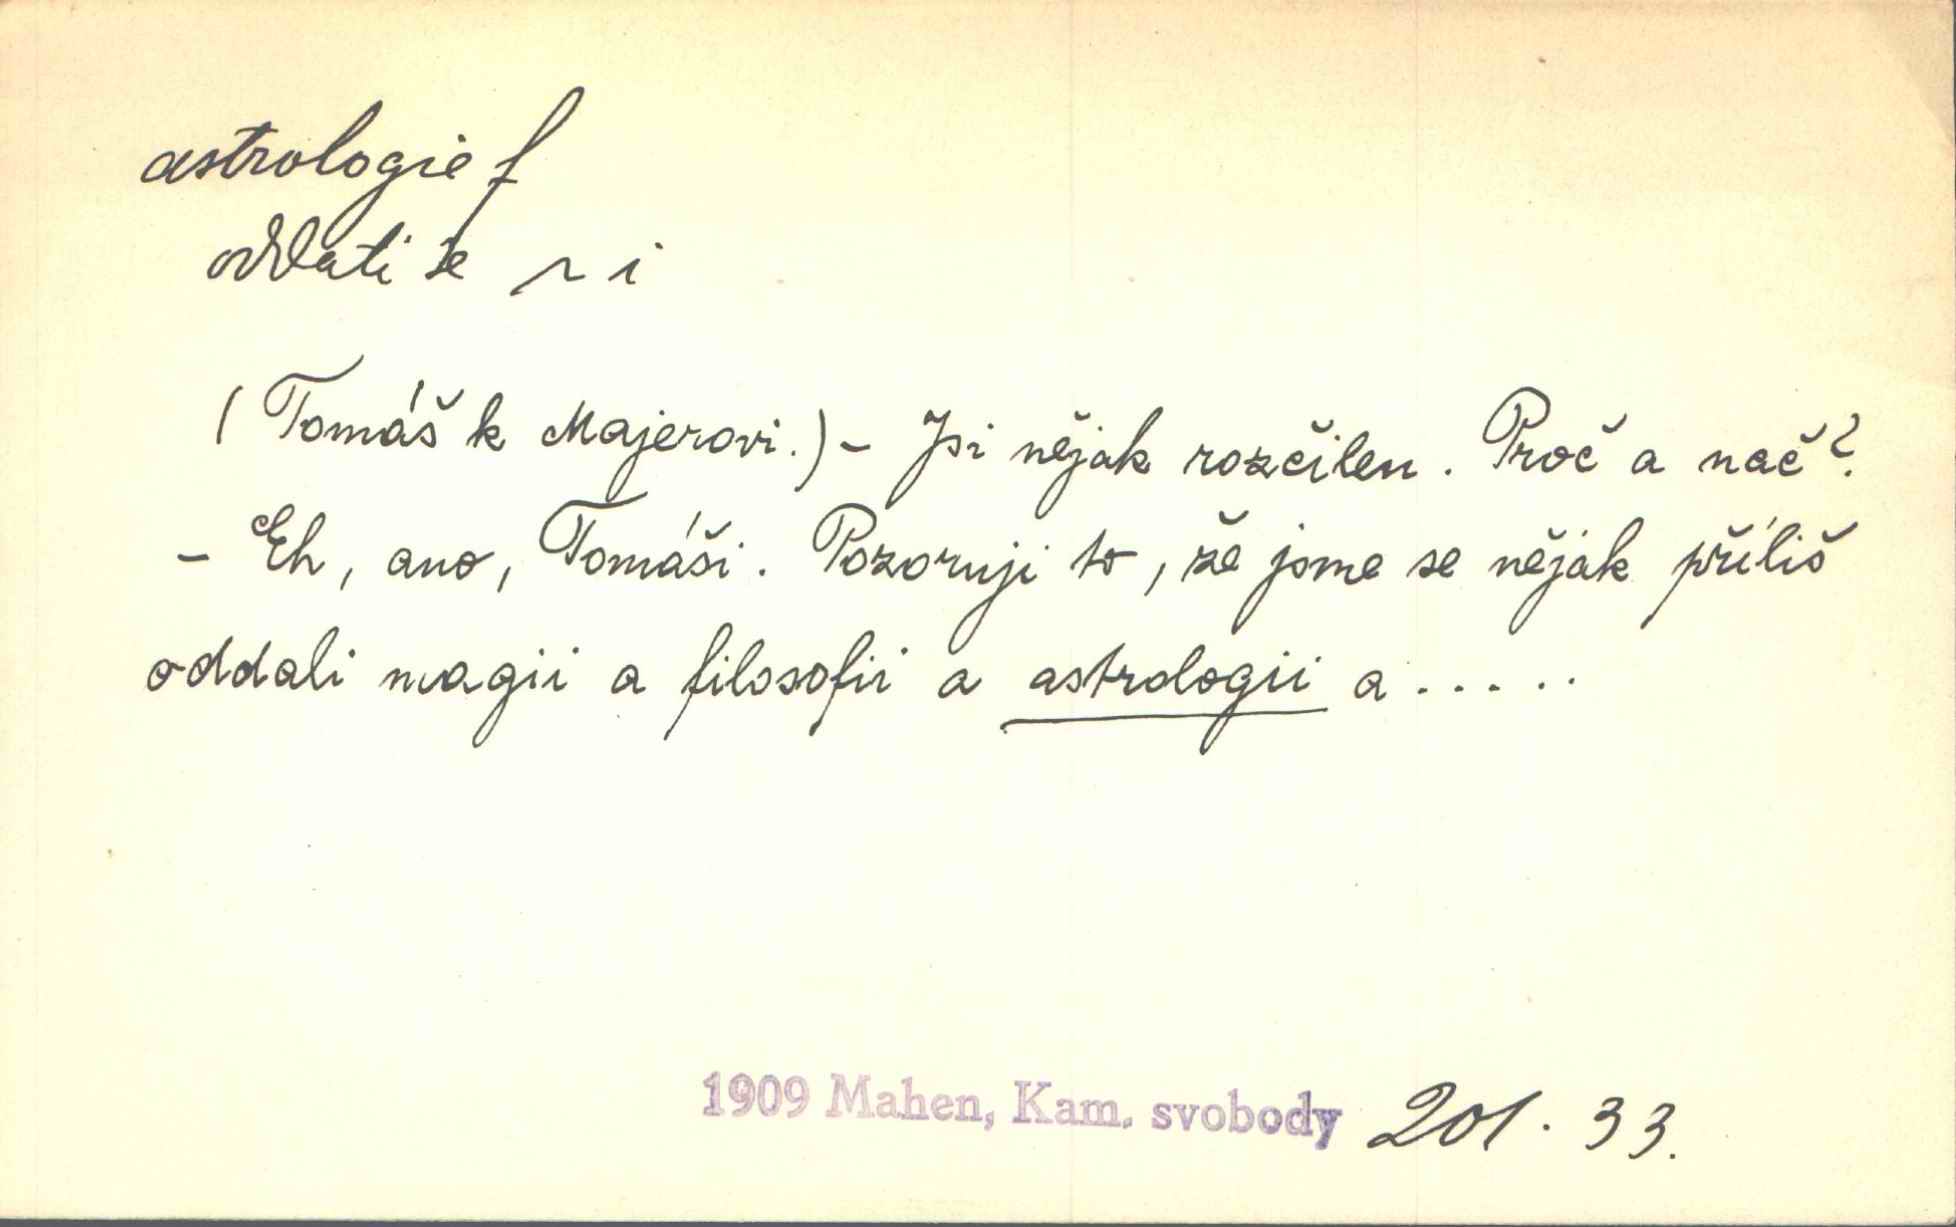 astrologie f
oddati se ~ i
(Tomáš k Majerovi.) - Jsi nějak rozčilen. Proč a nač?
- Eh, ano, Tomáši. Pozoruji to, že jsme se nějak příliš
oddali magii a filosofii a astrologii a.....
1909 Mahen, Kam. svobody 201. 33.